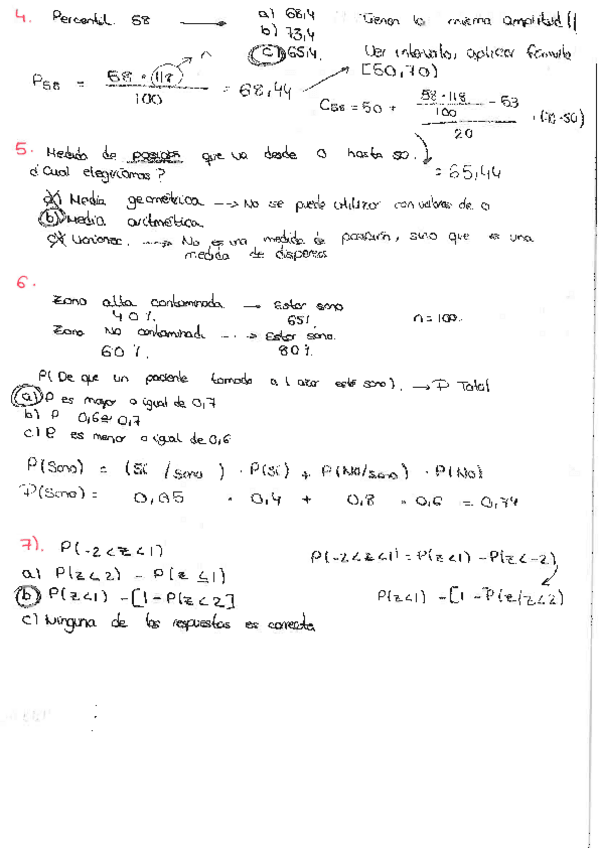 4. Percentil 58 → a) 68,4 Tienen la misma amplitud!!
b) 73,4
c) 65,4. Ver intervalo, aplicar fórmula
[50,70)
P58 = 58 · (118) / 100 = 68,44 n
C58 = 50 + (58 · 118 / 100 - 53) / 20 · (70-50)
= 65,44
5. Medida de posición que va desde 0 hasta 50.
¿Cual elegiriamos?
a) Media geométrica --> No se puede utilizar con valores de 0
b) Media aritmética
c) Varianza. ---> No es una medida de posición, sino que es una
medida de dispersión
6.
Zona alta contaminada → Estar sano
40%. 65%. n = 100.
Zona No contaminada --> Estar sano.
60%. 80%.
P( De que un paciente tomado al azar esté sano). → P Total
a) P es mayor o igual de 0,7
b) P 0,6 0,7
c) P es menor o igual de 0,6
P(Sano) = (Sí / sano) · P(Sí) + P(No/sano) · P(No)
P(Sano) = 0,65 · 0,4 + 0,8 · 0,6 = 0,74
7). P(-2<z<1) P(-2<z<1) = P(z<1) - P(z<-2)
a) P(z<2) - P(z≤1)
b) P(z<1) - [1-P(z<2] P(z<1) - [1 - P(z<2)
c) Ninguna de las respuestas es correcta